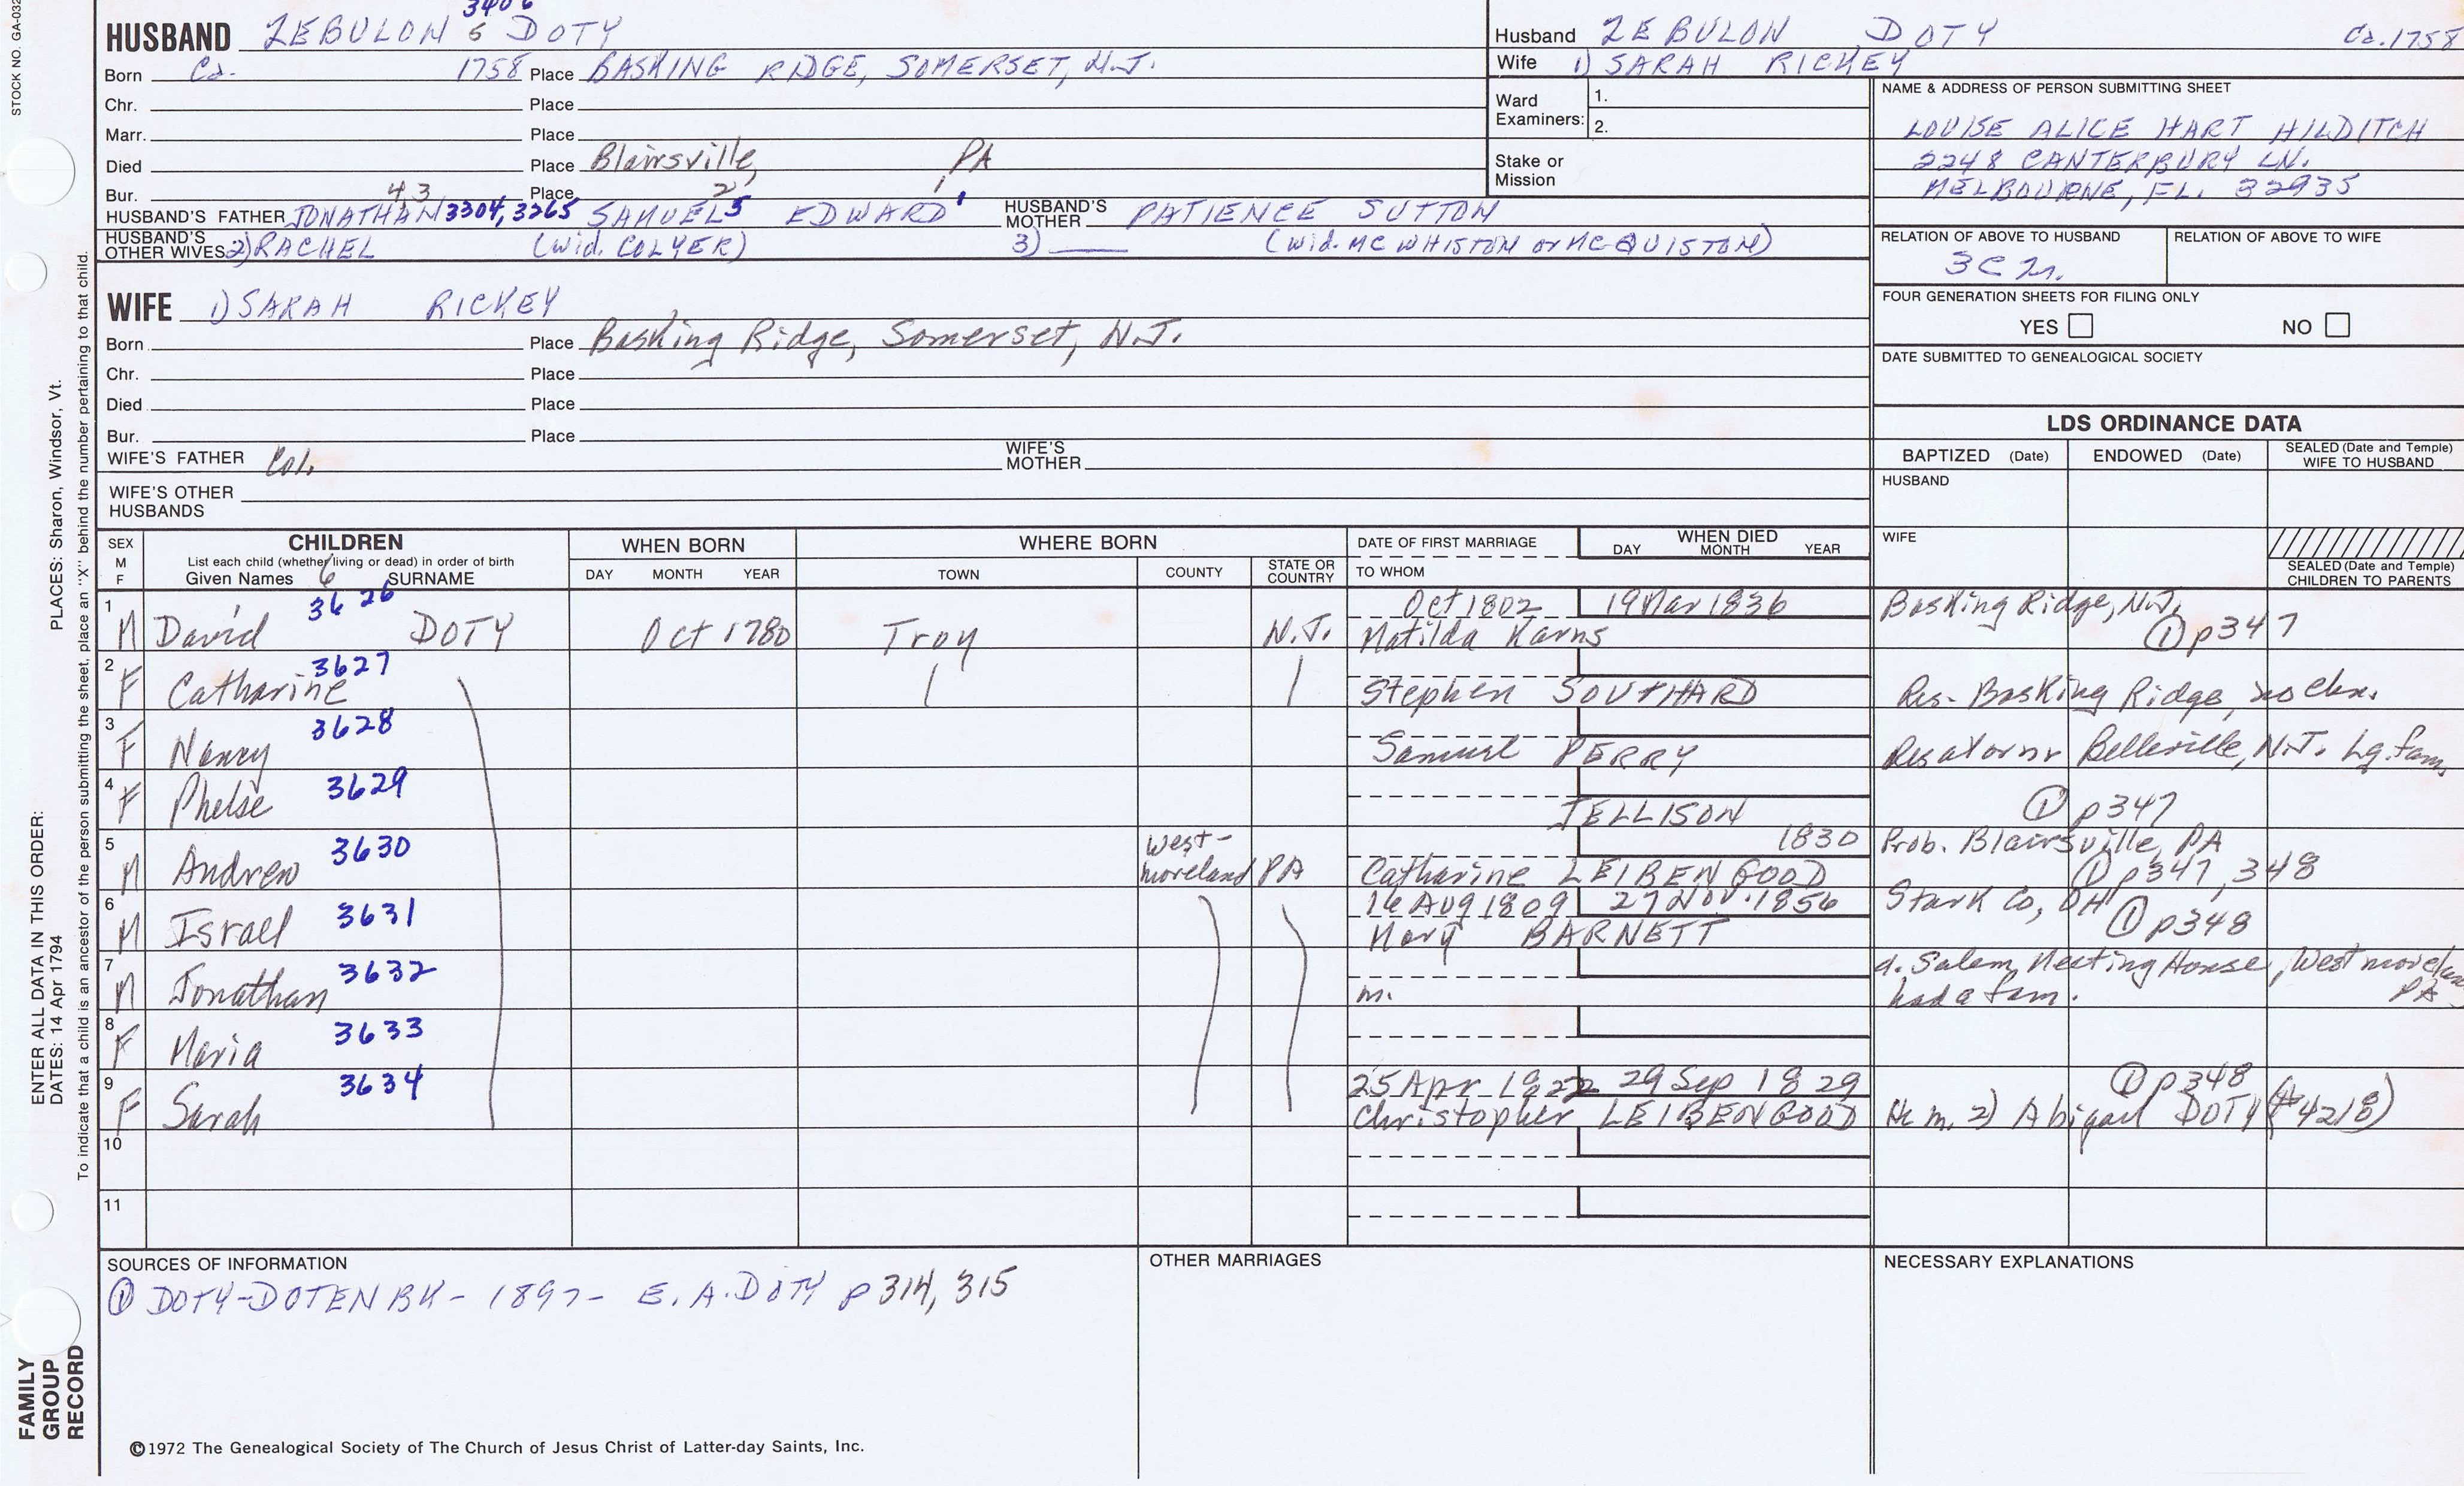 STOCK NO. GA-032
3406
HUSBAND ZEBULON 6 DOTY
Born Ca. 1758 Place BASKING RIDGE, SOMERSET, N.J.
Chr. Place
Marr. Place
Died Place Blairsville, PA
Bur. Place
4 3 2 1
HUSBAND'S FATHER JONATHAN 3304, 3265 SAMUEL 5 EDWARD HUSBAND'S MOTHER PATIENCE SUTTON
HUSBAND'S OTHER WIVES 2) RACHEL (wid. COLYER) 3) (wid. MC WHISTON or MC QUISTON)
WIFE 1) SARAH RICKEY
Born Place Basking Ridge, Somerset, N.J.
Chr. Place
Died Place
Bur. Place
WIFE'S FATHER Col. WIFE'S MOTHER
WIFE'S OTHER HUSBANDS
Husband ZEBULON DOTY Ca. 1758
Wife 1) SARAH RICKEY
Ward Examiners: 1.
2.
Stake or Mission
NAME & ADDRESS OF PERSON SUBMITTING SHEET
LOUISE ALICE HART HILDITCH
2248 CANTERBURY LN.
MELBOURNE, FL. 32935
RELATION OF ABOVE TO HUSBAND RELATION OF ABOVE TO WIFE
FOUR GENERATION SHEETS FOR FILING ONLY
YES NO
DATE SUBMITTED TO GENEALOGICAL SOCIETY
LDS ORDINANCE DATA
BAPTIZED (Date) ENDOWED (Date) SEALED (Date and Temple) WIFE TO HUSBAND
HUSBAND
WIFE
SEALED (Date and Temple) CHILDREN TO PARENTS
SEX M F
CHILDREN
List each child (whether living or dead) in order of birth
Given Names 6 SURNAME
WHEN BORN
DAY MONTH YEAR
WHERE BORN
TOWN COUNTY STATE OR COUNTRY
DATE OF FIRST MARRIAGE
TO WHOM
WHEN DIED
DAY MONTH YEAR
1 3626 Oct 1802 19 Mar 1836 Basking Ridge, N.J.
M David DOTY Oct 1780 Troy N.J. Matilda Karns ① p347
2 3627
F Catharine Stephen SOUTHARD Res. Basking Ridge, no chn.
3 3628
F Nancy Samuel PERRY Res at or nr Belleville, N.J. Lg. fam.
4 3629
F Phebe JELLISON ① p347
5 3630 West- 1830 Prob. Blairsville, PA
M Andrew moreland PA Catharine LEIBENGOOD ① p347, 348
6 3631 16 Aug 1809 27 Nov. 1856 Stark Co, OH
M Israel Mary BARNETT ① p348
7 3632 d. Salem Meeting House, Westmoreland
M Jonathan m. had a fam. PA
8 3633
F Maria
9 3634 25 Apr 1822 29 Sep 1829 ① p348
F Sarah Christopher LEIBENGOOD He m. 2) Abigail DOTY (#4218)
10
11
SOURCES OF INFORMATION
① DOTY-DOTEN BK - 1897 - E. A. DOTY p 314, 315
OTHER MARRIAGES
NECESSARY EXPLANATIONS
©1972 The Genealogical Society of The Church of Jesus Christ of Latter-day Saints, Inc.
ENTER ALL DATA IN THIS ORDER:
DATES: 14 Apr 1794 PLACES: Sharon, Windsor, Vt.
To indicate that a child is an ancestor of the person submitting the sheet, place an "X" behind the number pertaining to that child.
FAMILY
GROUP
RECORD